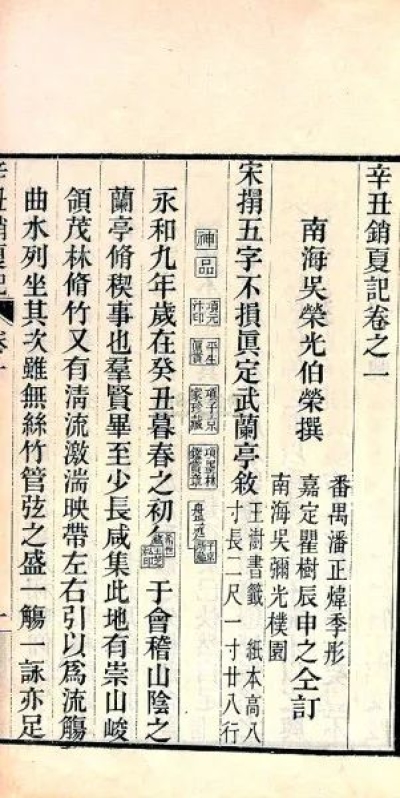 辛丑銷夏記卷之一
南海吳榮光伯榮撰
番禺潘正煒季彤
嘉定瞿樹辰申之仝訂
南海吳彌光樸園
宋搨五字不損眞定武蘭亭敘
王澍書籤 紙本高八
寸長二尺一寸廿八行
神品
項元汴印
平生眞賞
項子京家珍藏
項墨林鑑賞章
永和九年歲在癸丑暮春之初 于會稽山陰之
蘭亭脩稧事也羣賢畢至少長咸集此地有崇山峻
領茂林脩竹又有淸流激湍映帶左右引以爲流觴
曲水列坐其次雖無絲竹管弦之盛一觴一詠亦足
辛丑銷夏記